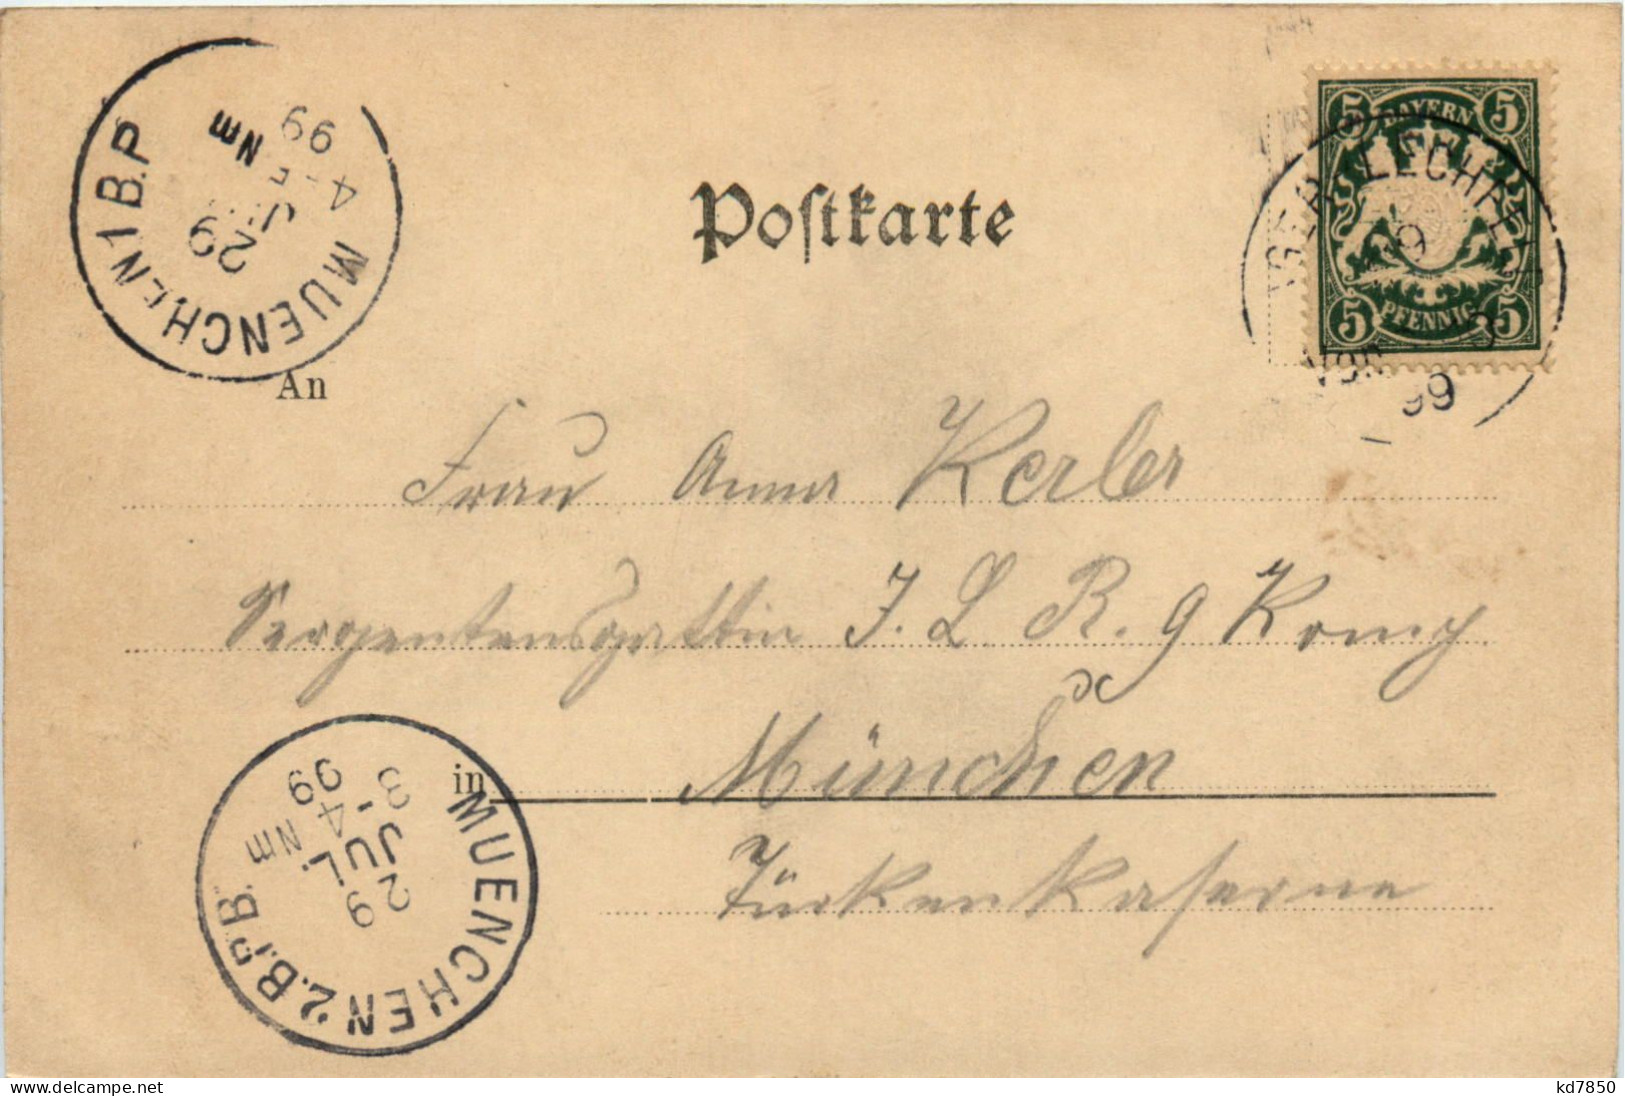 MUENCHEN 1 B.P.
29
JUL.
4-5 Nm
99
Postkarte
5 BAYERN 5
5 PFENNIG 5
LAGER LECHFELD
Vorm
99
An
Frau Anna Kerler
Sergentensgattin J. L R. 9 Komp
in München
Türkenkaserne
MUENCHEN 2. B.P. B.
29
JUL.
3-4 Nm
99
www.delcampe.net
kd7850